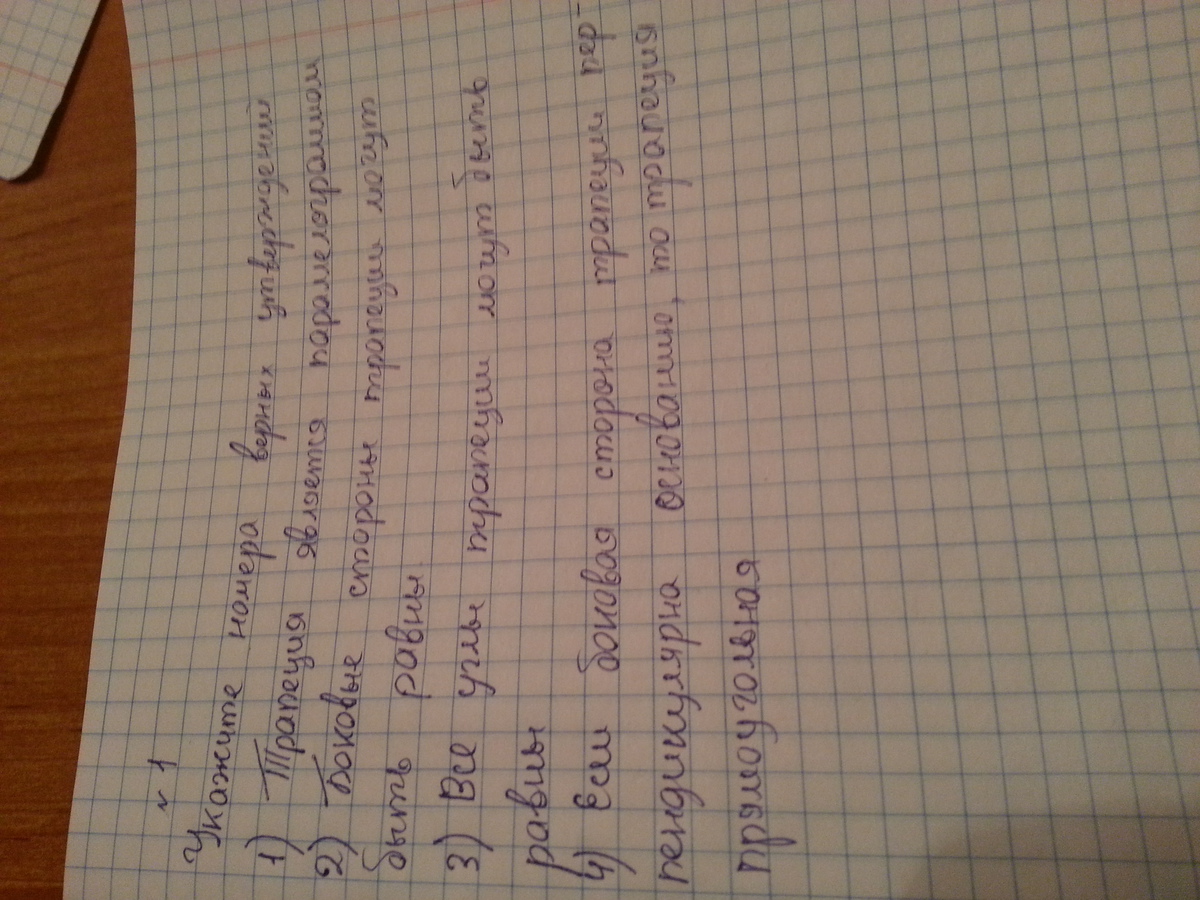 № 1
Укажите номера верных утверждений
1) Трапеция является параллелограммом
2) Боковые стороны трапеции могут
быть равны.
3) Все углы трапеции могут быть
равны
4) Если боковая сторона трапеции пер-
пендикулярна основанию, то трапеция
прямоугольная